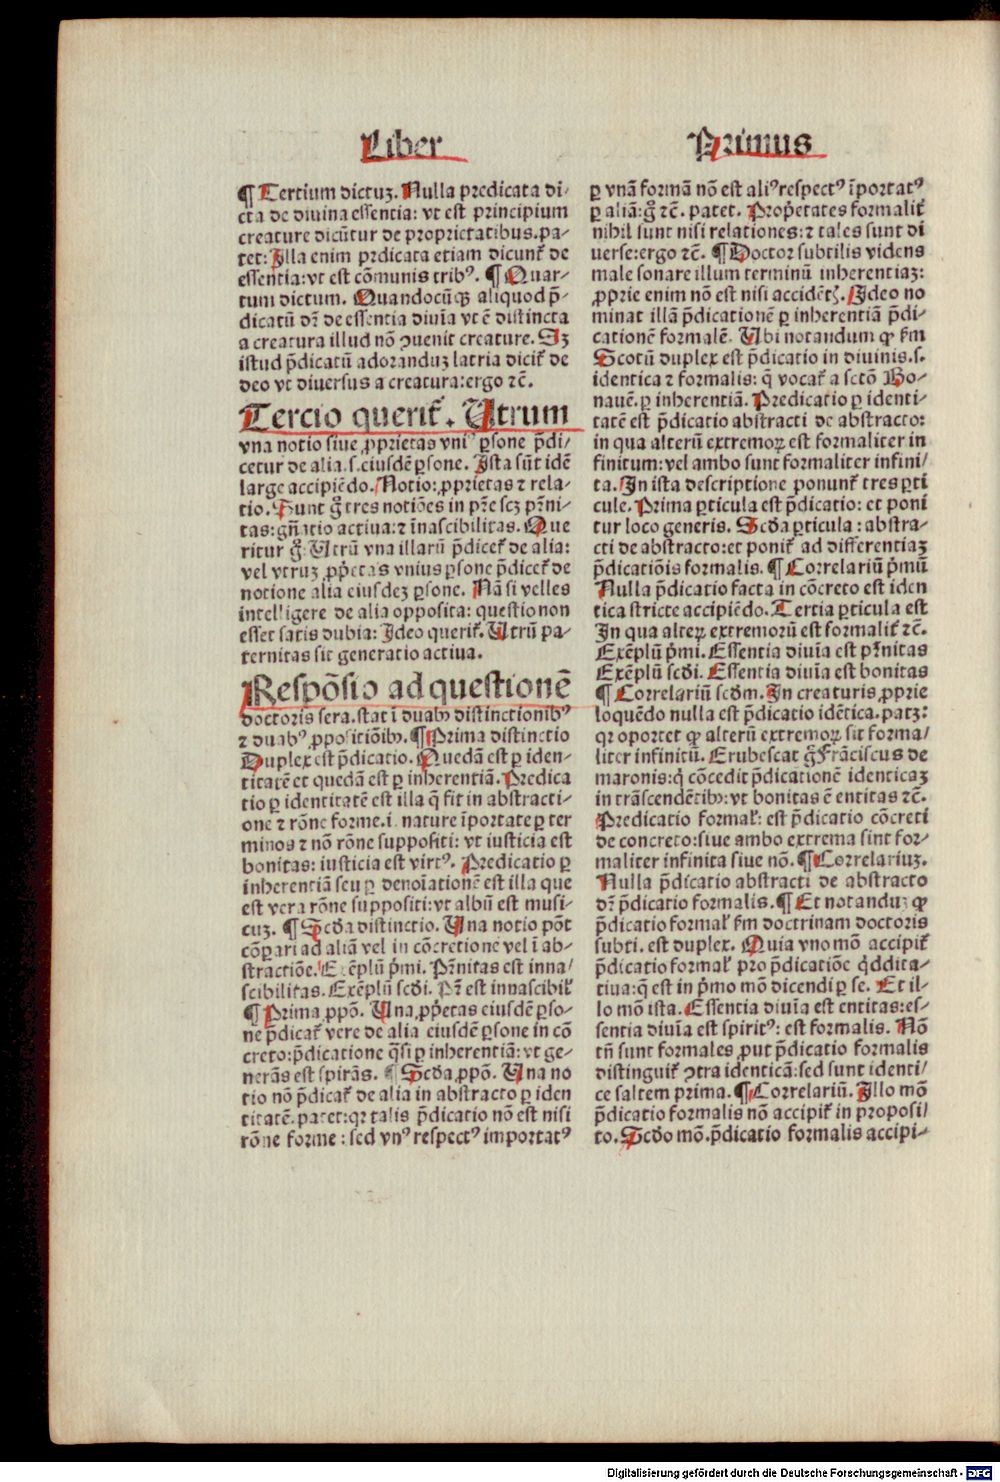 Liber Primus
¶ Tertium dictuꝫ. Nulla predicata di⸗
cta de diuina essentia: vt est principium
creature dicūtur de proprietatibus. pa⸗
tet: Illa enim pꝛedicata etiam dicunt᷑ de
essentia: vt est cōmunis tribꝰ. ¶ Quar⸗
tum dictum. Quandocūqꝫ aliquod p̄⸗
dicatū dr̄ de essentia diuīa vt ē distincta
a creatura illud nō ꝯuenit creature. Iꝫ
istud p̄dicatū adoranduꝫ latria dicit᷑ de
deo vt diuersus a creatura: ergo ⁊c̄.
Tercio querit᷑. Utrum
vna notio siue ꝓprietas vniꝰ ꝑsone p̄di⸗
cetur de alia .s. eiusdē ꝑsone. Ista sūt idē
large accipiēdo. Notio: ꝓprietas ⁊ rela⸗
tio. Sunt gͦ tres notiōes in pr̄e scꝫ pr̄ni⸗
tas: gn̄atio actiua: ⁊ īnascibilitas. Que
ritur gͦ. Utrū vna illarū p̄dicet᷑ de alia:
vel vtruꝫ ꝓp̄etas vnius ꝑsone p̄dicet᷑ de
notione alia eiusdeꝫ ꝑsone. Nā si velles
intelligere de alia opposita: questio non
esset satis dubia: Ideo querit᷑. Utrū pa⸗
ternitas sit generatio actiua.
Respōsio ad questionē
doctoris sera. stat ī duabꝫ distinctionibꝰ
⁊ duabꝰ ꝓpositiōibꝫ. ¶ Prima distinctio
Duplex est p̄dicatio. Quedā est ꝑ iden⸗
titatē et quedā est ꝑ inherentiā. Predica
tio ꝑ identitatē est illa q̄ fit in abstracti⸗
one ⁊ rōne forme .i. nature īportate ꝑ ter
minos ⁊ nō rōne suppositi: vt iusticia est
bonitas: iusticia est virtꝰ. Predicatio ꝑ
inherentiā seu ꝑ denoīationē est illa que
est vera rōne suppositi: vt albū est musi⸗
cuꝫ. ¶ Scd̄a distinctio. Una notio pōt
cōꝑari ad aliā vel in cōcretione vel ī ab⸗
stractiōe. Exēplū p̄mi. Pr̄nitas est inna⸗
scibilitas. Exēplū scd̄i. Pr̄ est innascibil᷑
¶ Prima ꝓpō. Una ꝓp̄etas eiusdē ꝑso⸗
ne p̄dicat᷑ vere de alia eiusdē ꝑsone in cō
creto: p̄dicatione q̄si ꝑ inherentiā: vt ge⸗
nerās est spirās. ¶ Scd̄a ꝓpō. Una no
tio nō p̄dicat᷑ de alia in abstracto ꝑ iden
titatē. patet: qꝛ talis p̄dicatio nō est nisi
rōne forme: sed vnꝰ respectꝰ importatꝰ
ꝑ vnā formā nō est aliꝰ respectꝰ īportatꝰ
ꝑ aliā: gͦ ⁊c̄. patet. Prop̄etates formalit᷑
nihil sunt nisi relationes: ⁊ tales sunt di
uerse: ergo ⁊c̄. ¶ Doctor subtilis videns
male sonare illum terminū inherentiaꝫ:
ꝓprie enim nō est nisi accidētꝭ. Ideo no
minat illā p̄dicationē ꝑ inherentiā p̄di⸗
cationē formalē. Ubi notandum ꝙ ẜm
Scotū duplex est p̄dicatio in diuinis .s.
identica ⁊ formalis: q̄ vocat᷑ a sctō Bo⸗
nauē. ꝑ inherentiā. Predicatio ꝑ identi⸗
tatē est p̄dicatio abstracti de abstracto:
in qua alterū extremoꝝ est formaliter in
finitum: vel ambo sunt formaliter infini⸗
ta. In ista descriptione ponunt᷑ tres ꝑti
cule. Prima ꝑticula est p̄dicatio: et poni
tur loco generis. Scd̄a ꝑticula: abstra⸗
cti de abstracto: et ponit᷑ ad differentiaꝫ
p̄dicatiōis formalis. ¶ Correlariū p̄mū
Nulla p̄dicatio facta in cōcreto est iden
tica stricte accipiēdo. Tertia ꝑticula est
In qua alteꝝ extremorū est formalit᷑ ⁊c̄.
Exēplū p̄mi. Essentia diuīa est pr̄nitas
Exēplū scd̄i. Essentia diuīa est bonitas
¶ Correlariū scd̄m. In creaturis ꝓprie
loquēdo nulla est p̄dicatio idētica. patꝫ:
qꝛ oportet ꝙ alterū extremoꝝ sit forma⸗
liter infinitū. Erubescat gͦ Frāciscus de
maronis: q̇ cōcedit p̄dicationē identicaꝫ
in trāscendētibꝫ: vt bonitas ē entitas ⁊c̄.
Predicatio formal᷑: est p̄dicatio cōcreti
de concreto: siue ambo extrema sint for⸗
maliter infinita siue nō. ¶ Correlariuꝫ.
Nulla p̄dicatio abstracti de abstracto
dr̄ p̄dicatio formalis. ¶ Et notanduꝫ ꝙ
p̄dicatio formal᷑ ẜm doctrinam doctoris
subti. est duplex. Quia vno mō accipit᷑
p̄dicatio formal᷑ pro p̄dicatiōe q̇ddita⸗
tiua: q̄ est in p̄mo mō dicendi ꝑ se. Et il⸗
lo mō ista. Essentia diuīa est entitas: es⸗
sentia diuīa est spiritꝰ: est formalis. Nō
tn̄ sunt formales ꝓut p̄dicatio formalis
distinguit᷑ ꝯtra identicā: sed sunt identi⸗
ce saltem prima. ¶ Correlariū. Illo mō
p̄dicatio formalis nō accipit᷑ in proposi⸗
to. Scd̄o mō. p̄dicatio formalis accipi⸗
Digitalisierung gefördert durch die Deutsche Forschungsgemeinschaft - DFG